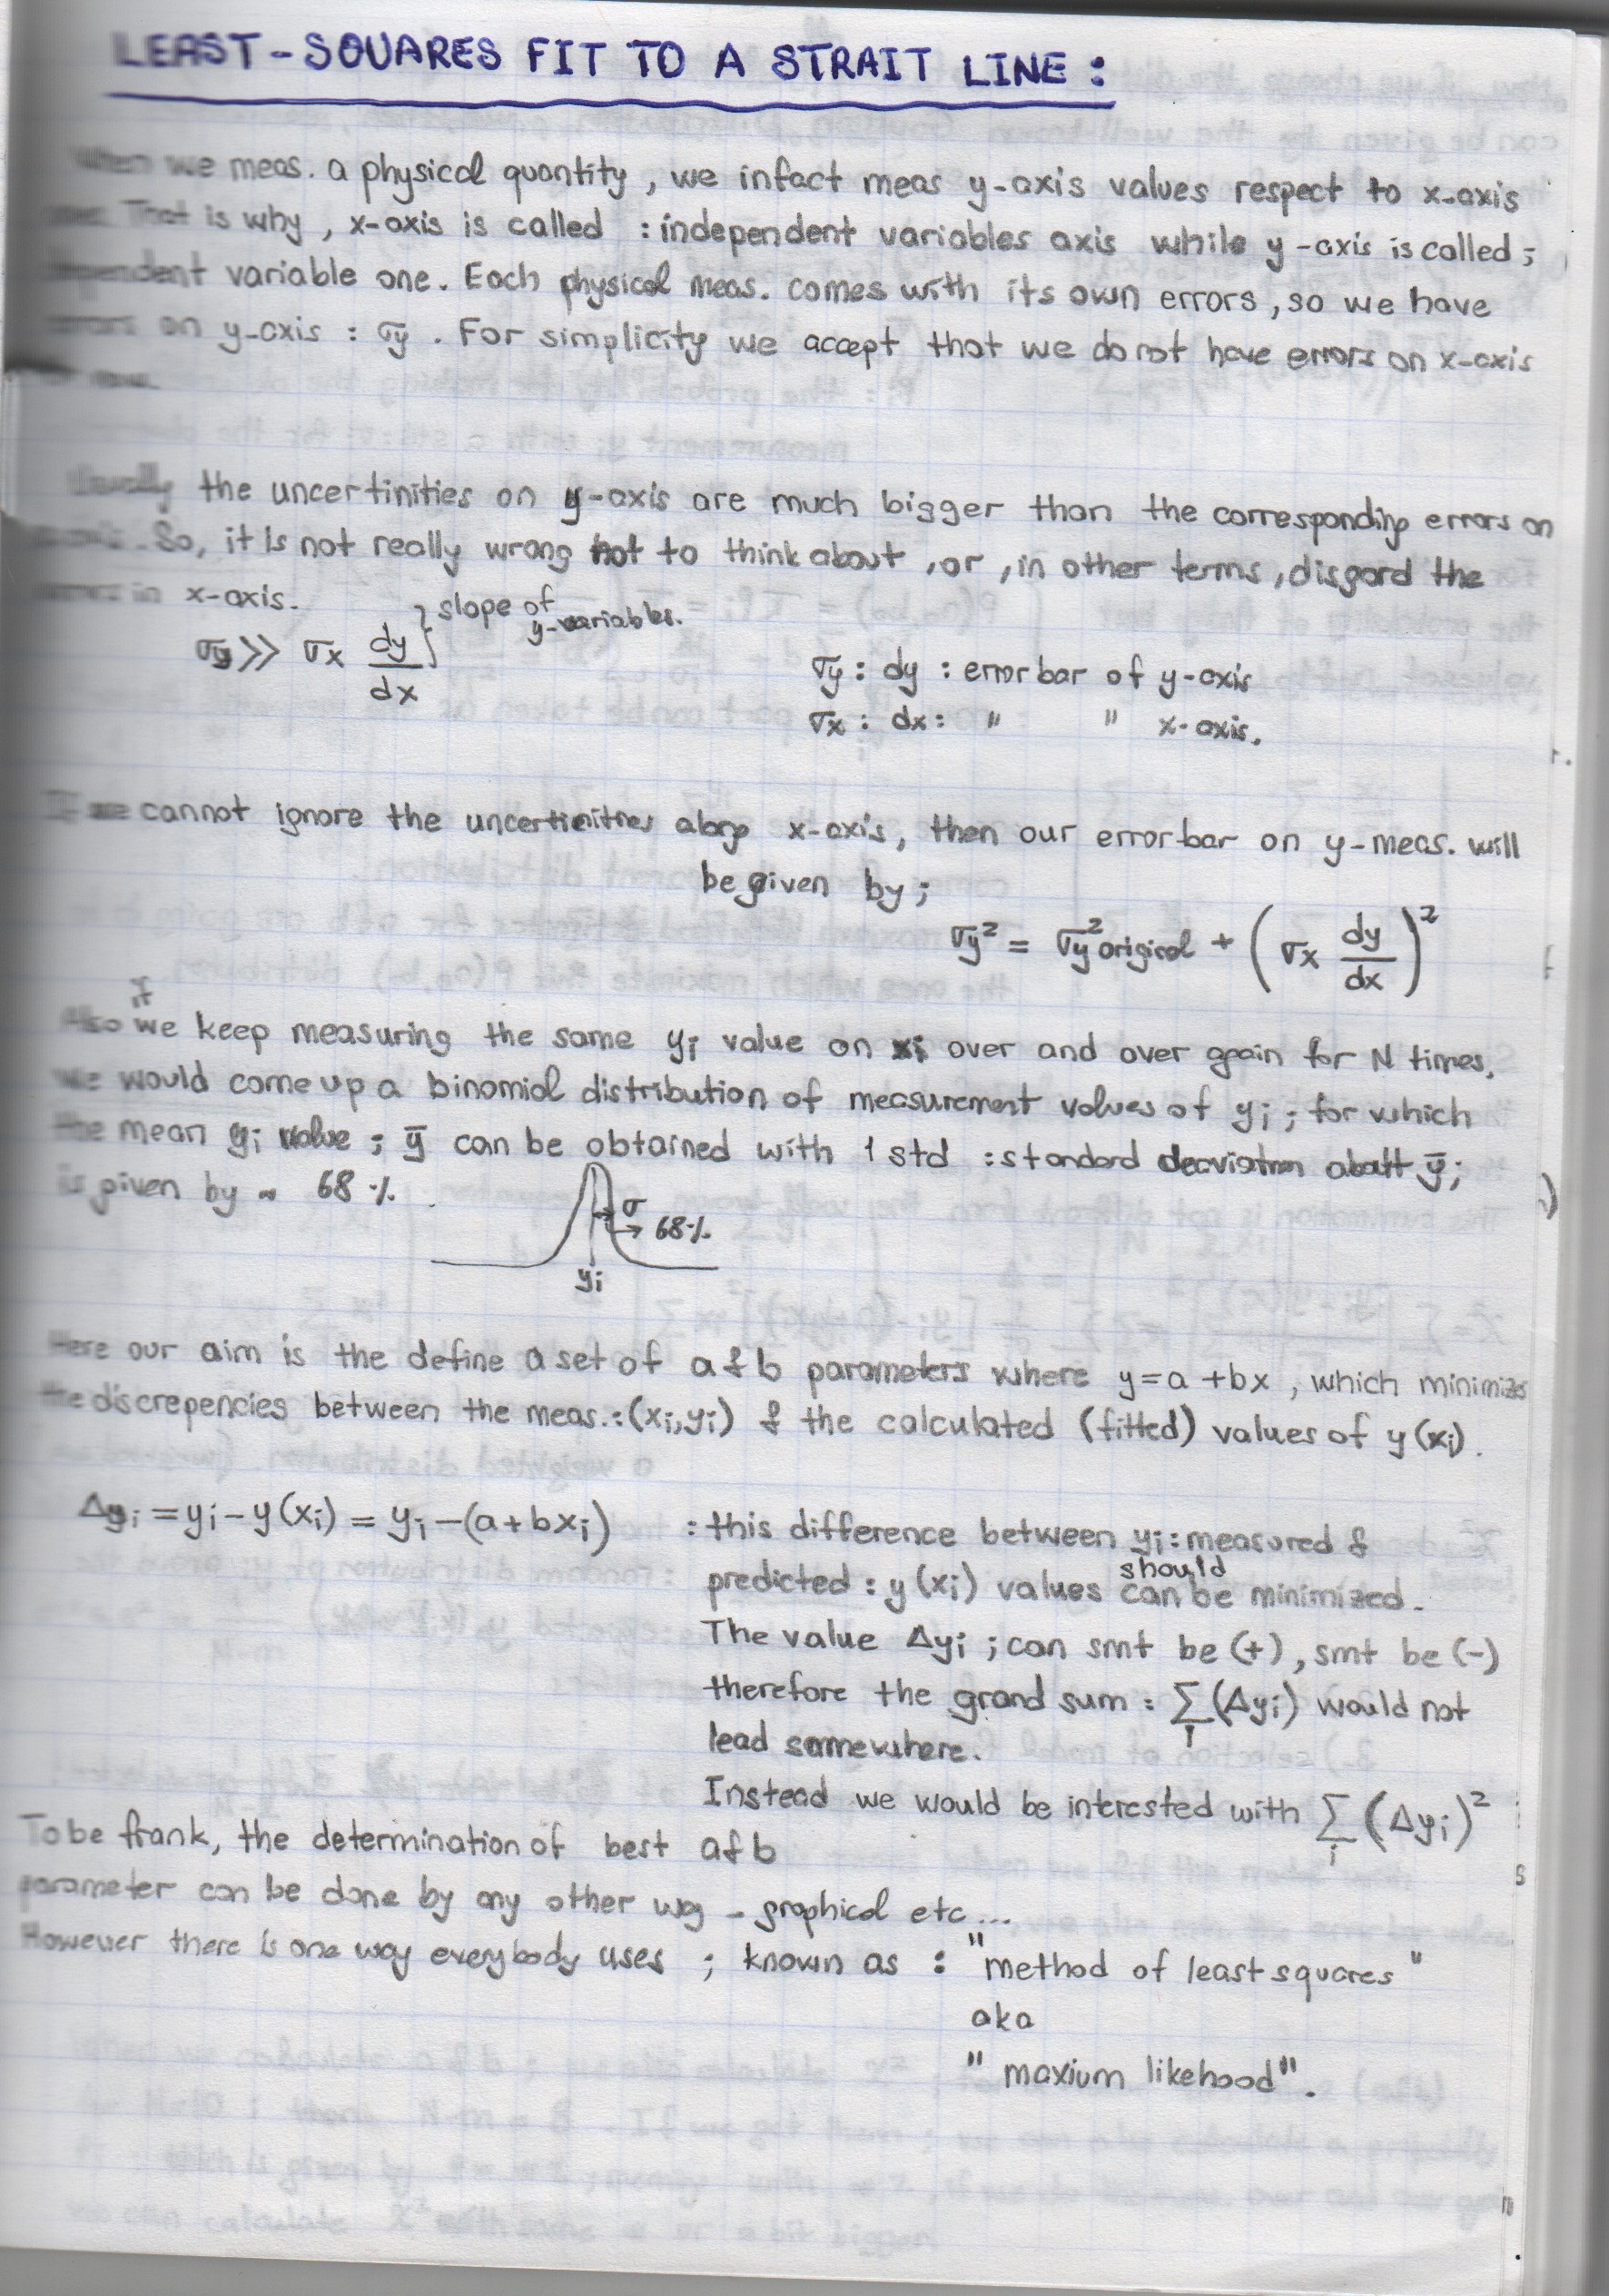 LEAST-SQUARES FIT TO A STRAIT LINE :
When we meas. a physical quantity, we infact meas y-axis values respect to x-axis
That is why, x-axis is called : independent variables axis while y-axis is called ;
dependent variable one. Each physical meas. comes with its own errors, so we have
errors on y-axis : σy . For simplicity we accept that we do not have errors on x-axis
Usually the uncertinities on y-axis are much bigger than the corresponding errors on
So, it is not really wrong not to think about, or, in other terms, disgard the
errors in x-axis.
σy >> σx dy/dx } slope of y-variables.
σy : dy : error bar of y-axis
σx : dx : " " x-axis.
If we cannot ignore the uncertinities along x-axis, then our error bar on y-meas. will
be given by ;
σy² = σy² original + (σx dy/dx)²
if
Also we keep measuring the same yi value on xi over and over again for N times,
we would come up a binomial distribution of measurement values of yi ; for which
the mean yi value ; ȳ can be obtained with 1 std : standard deaviation abatt ȳ ;
is given by ~ 68 %.
σ
→ 68%.
yi
Here our aim is the define a set of a & b parameters where y = a + bx , which minimizes
the discrepencies between the meas.: (xi, yi) & the calculated (fitted) values of y(xi).
Δyi = yi - y(xi) = yi - (a + bxi) : this difference between yi : measured &
should
predicted : y(xi) values can be minimized.
The value Δyi ; can smt be (+), smt be (-)
therefore the grand sum : Σi (Δyi) would not
lead somewhere.
Instead we would be interested with Σi (Δyi)²
To be frank, the determination of best a & b
parameter can be done by any other way - graphical etc...
However there is one way everybody uses ; known as : "method of least squares"
aka
" maxium likehood".